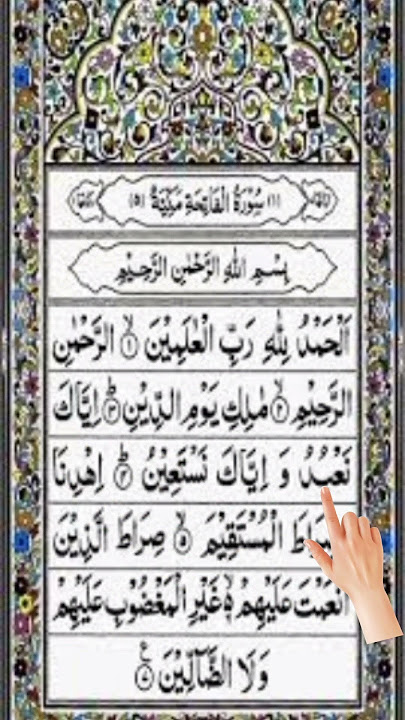 (١) سُوْرَةُ الْفَاتِحَةِ مَكِّيَّةٌ (٥)
بِسْمِ اللهِ الرَّحْمٰنِ الرَّحِيْمِ
اَلْحَمْدُ لِلّٰهِ رَبِّ الْعٰلَمِيْنَ ۙ﴿۱﴾ الرَّحْمٰنِ
الرَّحِيْمِ ۙ﴿۲﴾ مٰلِكِ يَوْمِ الدِّيْنِ ؕ﴿۳﴾ اِيَّاكَ
نَعْبُدُ وَ اِيَّاكَ نَسْتَعِيْنُ ؕ﴿۴﴾ اِهْدِنَا
الْمُسْتَقِيْمَ ۙ﴿۵﴾ صِرَاطَ الَّذِيْنَ
اَنْعَمْتَ عَلَيْهِمْ ۙ﴿۶﴾ غَيْرِ الْمَغْضُوْبِ عَلَيْهِمْ
وَلَا الضَّآلِّيْنَ